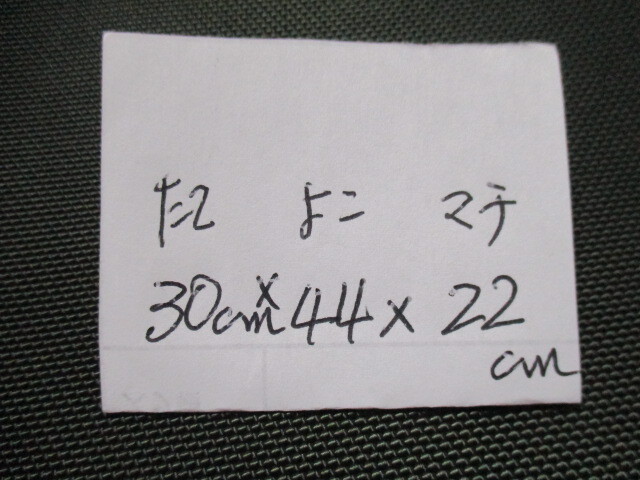 たて よこ マチ
30cm×44×22
cm